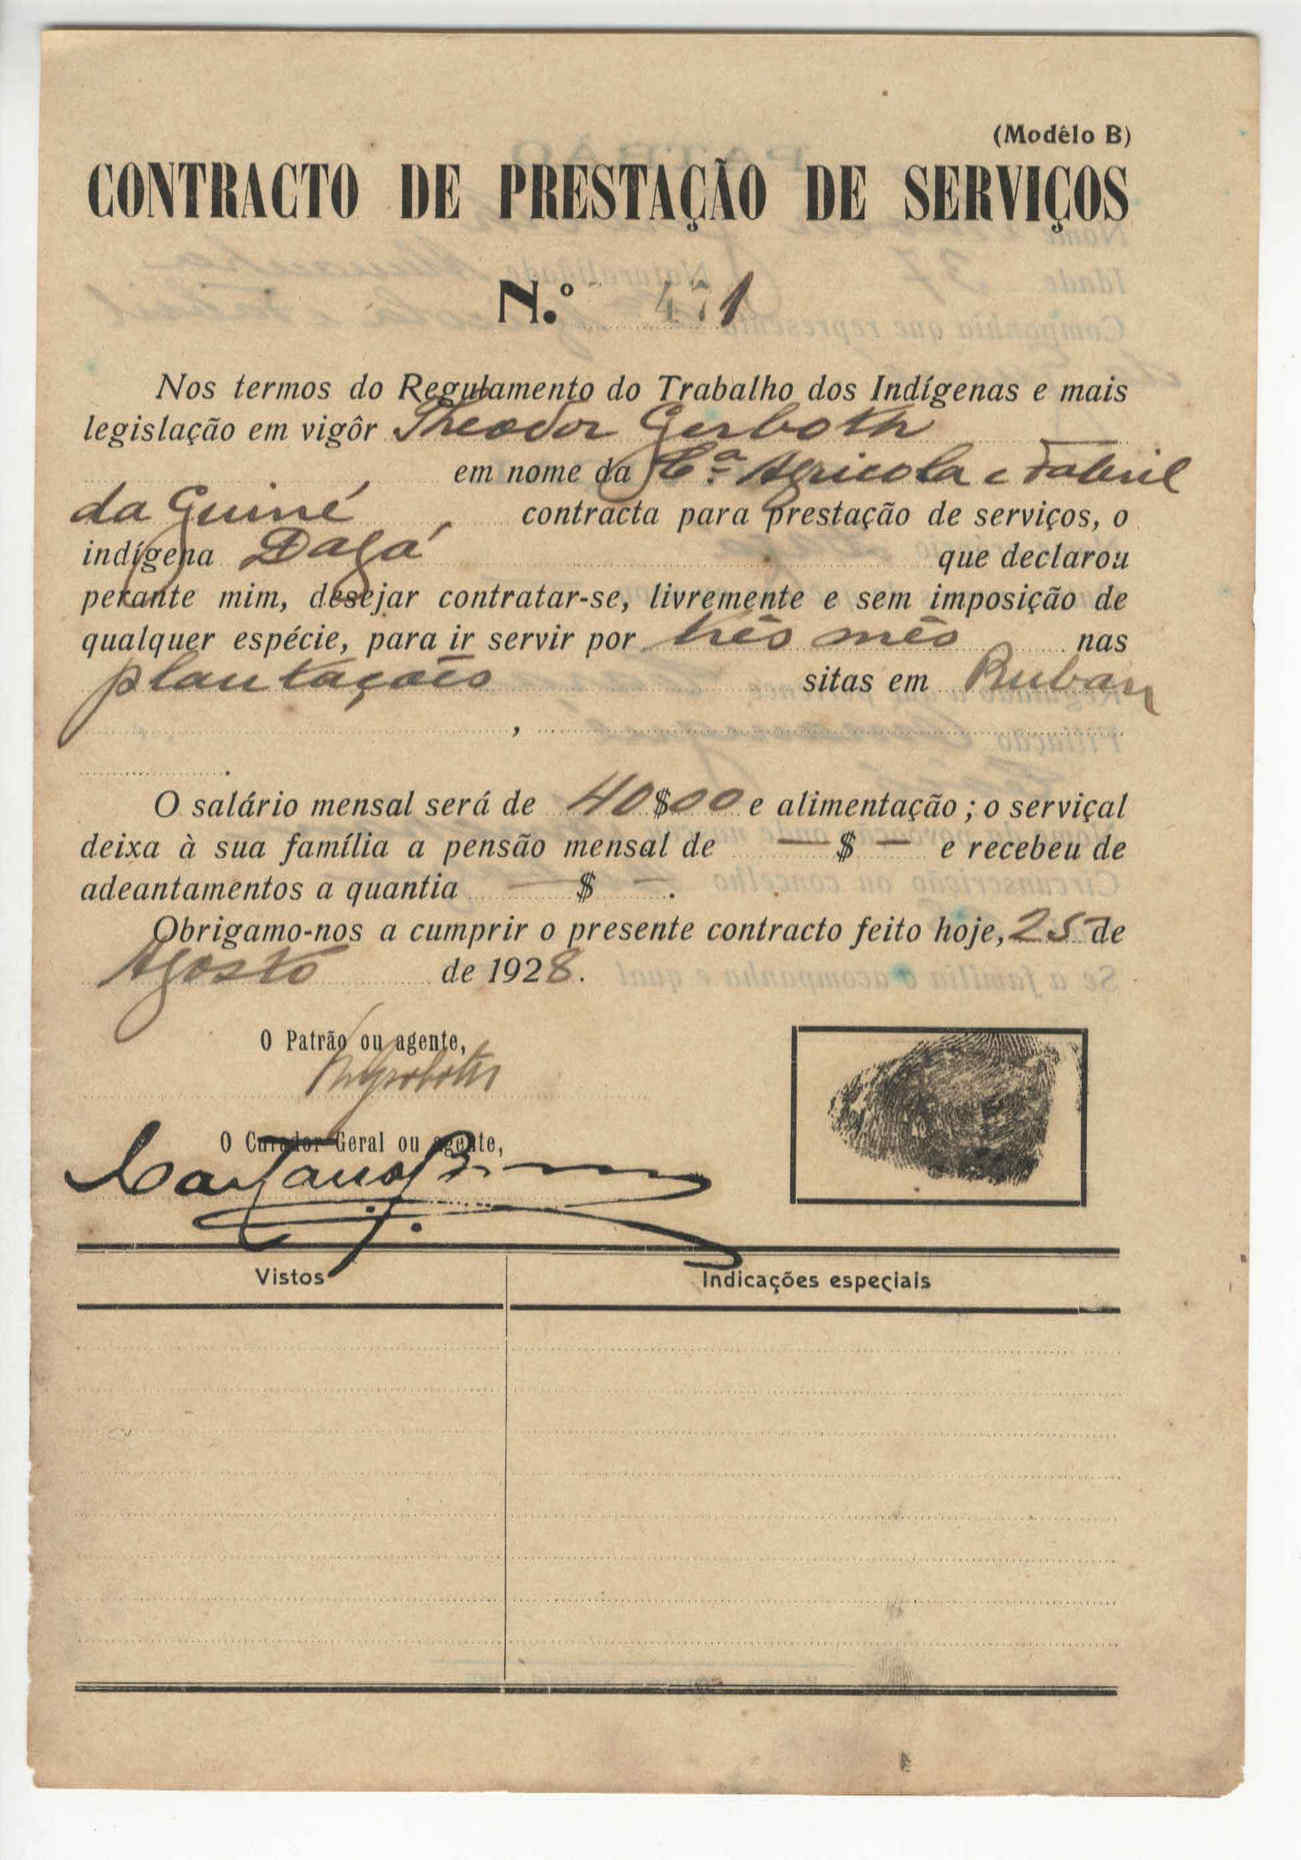 (Modêlo B)
CONTRACTO DE PRESTAÇÃO DE SERVIÇOS
N.º 471
Nos termos do Regulamento do Trabalho dos Indígenas e mais
legislação em vigôr Theodor Gerboth
, em nome da Cª Agricola e Fabril
da Guiné, contracta para prestação de serviços, o
indígena Dagá que declarou
perante mim, desejar contratar-se, livremente e sem imposição de
qualquer espécie, para ir servir por três mês nas
plantações sitas em Ruban
,
.
O salário mensal será de 40$00 e alimentação; o serviçal
deixa à sua família a pensão mensal de —$— e recebeu de
adeantamentos a quantia —$—.
Obrigamo-nos a cumprir o presente contracto feito hoje, 25 de
Agosto de 1928.
O Patrão ou agente,
O Curador Geral ou agente,
Vistos
Indicações especiais